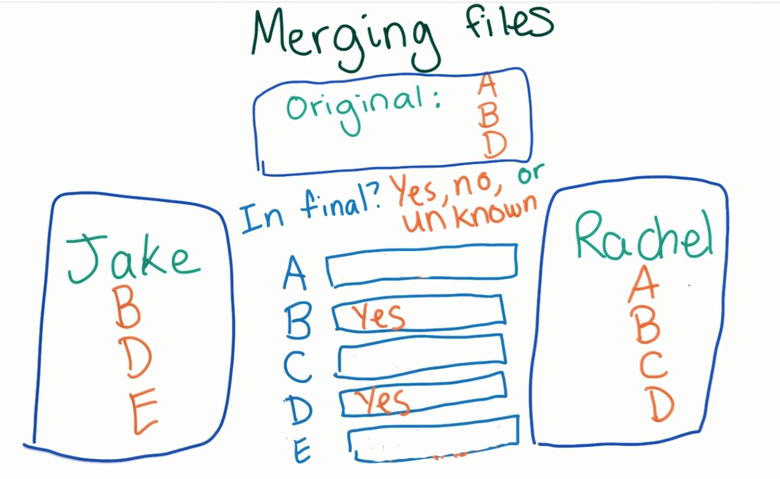 Merging files
Original:
A
B
D
In final? Yes, no, or
unknown
Jake
B
D
E
A
B Yes
C
D Yes
E
Rachel
A
B
C
D